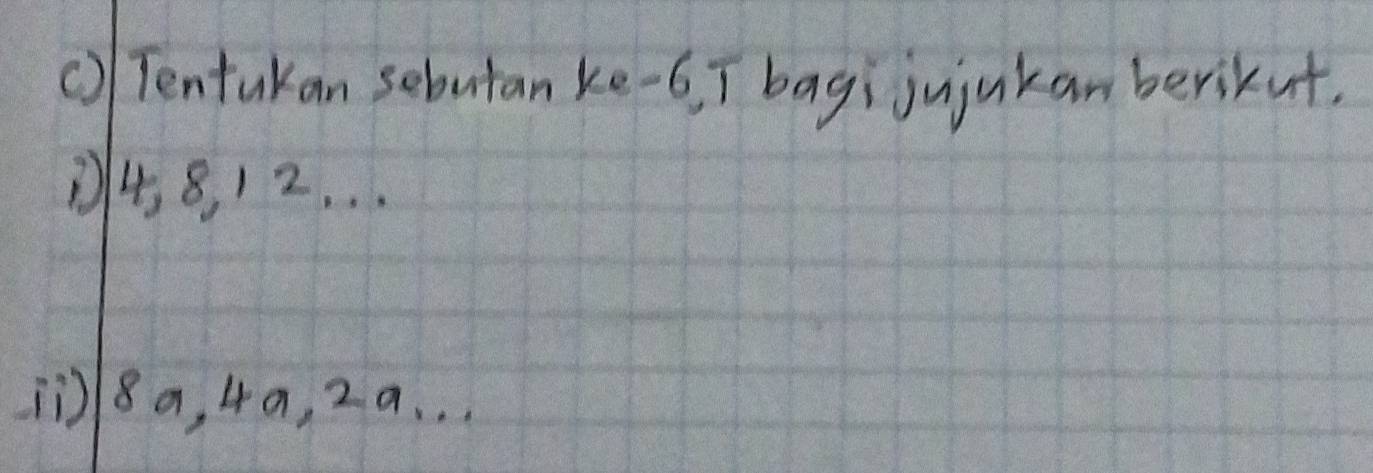 c) Tentukan sebutan ke-6, T bagi jujukan berikut.
i) 4, 8, 12...
ii) 8a, 4a, 2a...